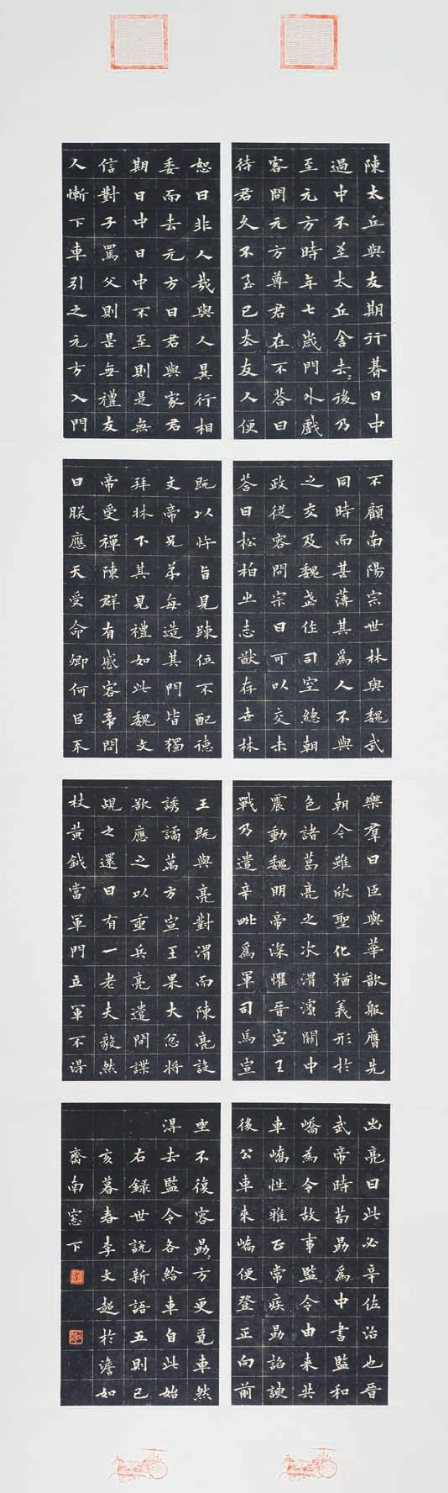 陳太丘與友期行朞日中
過中不至太丘舍去後乃
至元方時年七歲門外戲
客問元方尊君在不答曰
待君久不至已去友人便
怒曰非人哉與人異行相
委而去元方曰君與家君
期日中日中不至則是無
信對子罵父則是無禮友
人慚下車引之元方入門
不顧南陽宗世林與魏武
同時而甚薄其為人不與
之交及魏武作司空總朝
政從容問宗曰可以交未
答曰松柏之志猷存世林
既以忤旨見疎位不配德
文帝兄弟每造其門皆獨
拜牀下其見禮如此魏文
帝受禪陳群有慼容帝問
曰朕應天受命卿何以不
樂羣曰臣與華歆服膺先
朝今雖欣聖化猶義形於
色諸葛亮之次渭濱關中
震動魏明帝深懼晉宣王
戰乃遣辛毗為軍司馬宣
王既與亮對渭而陳亮設
誘譎萬方宣王果大忿將
欲應之以重兵亮遣間諜
覘之還曰有一老夫毅然
杖黃鉞當軍門立軍不得
出亮曰此必辛佐治也晉
武帝時荀勗為中書監和
嶠為令故事監令由來共
車嶠性雅正常疾勗諂諛
後公車來嶠便登正向前
坐不復容勗方更覓車然
得去監令各給車自此始
右錄世說新語五則己
亥暮春李文超於澹如
齋南窓下